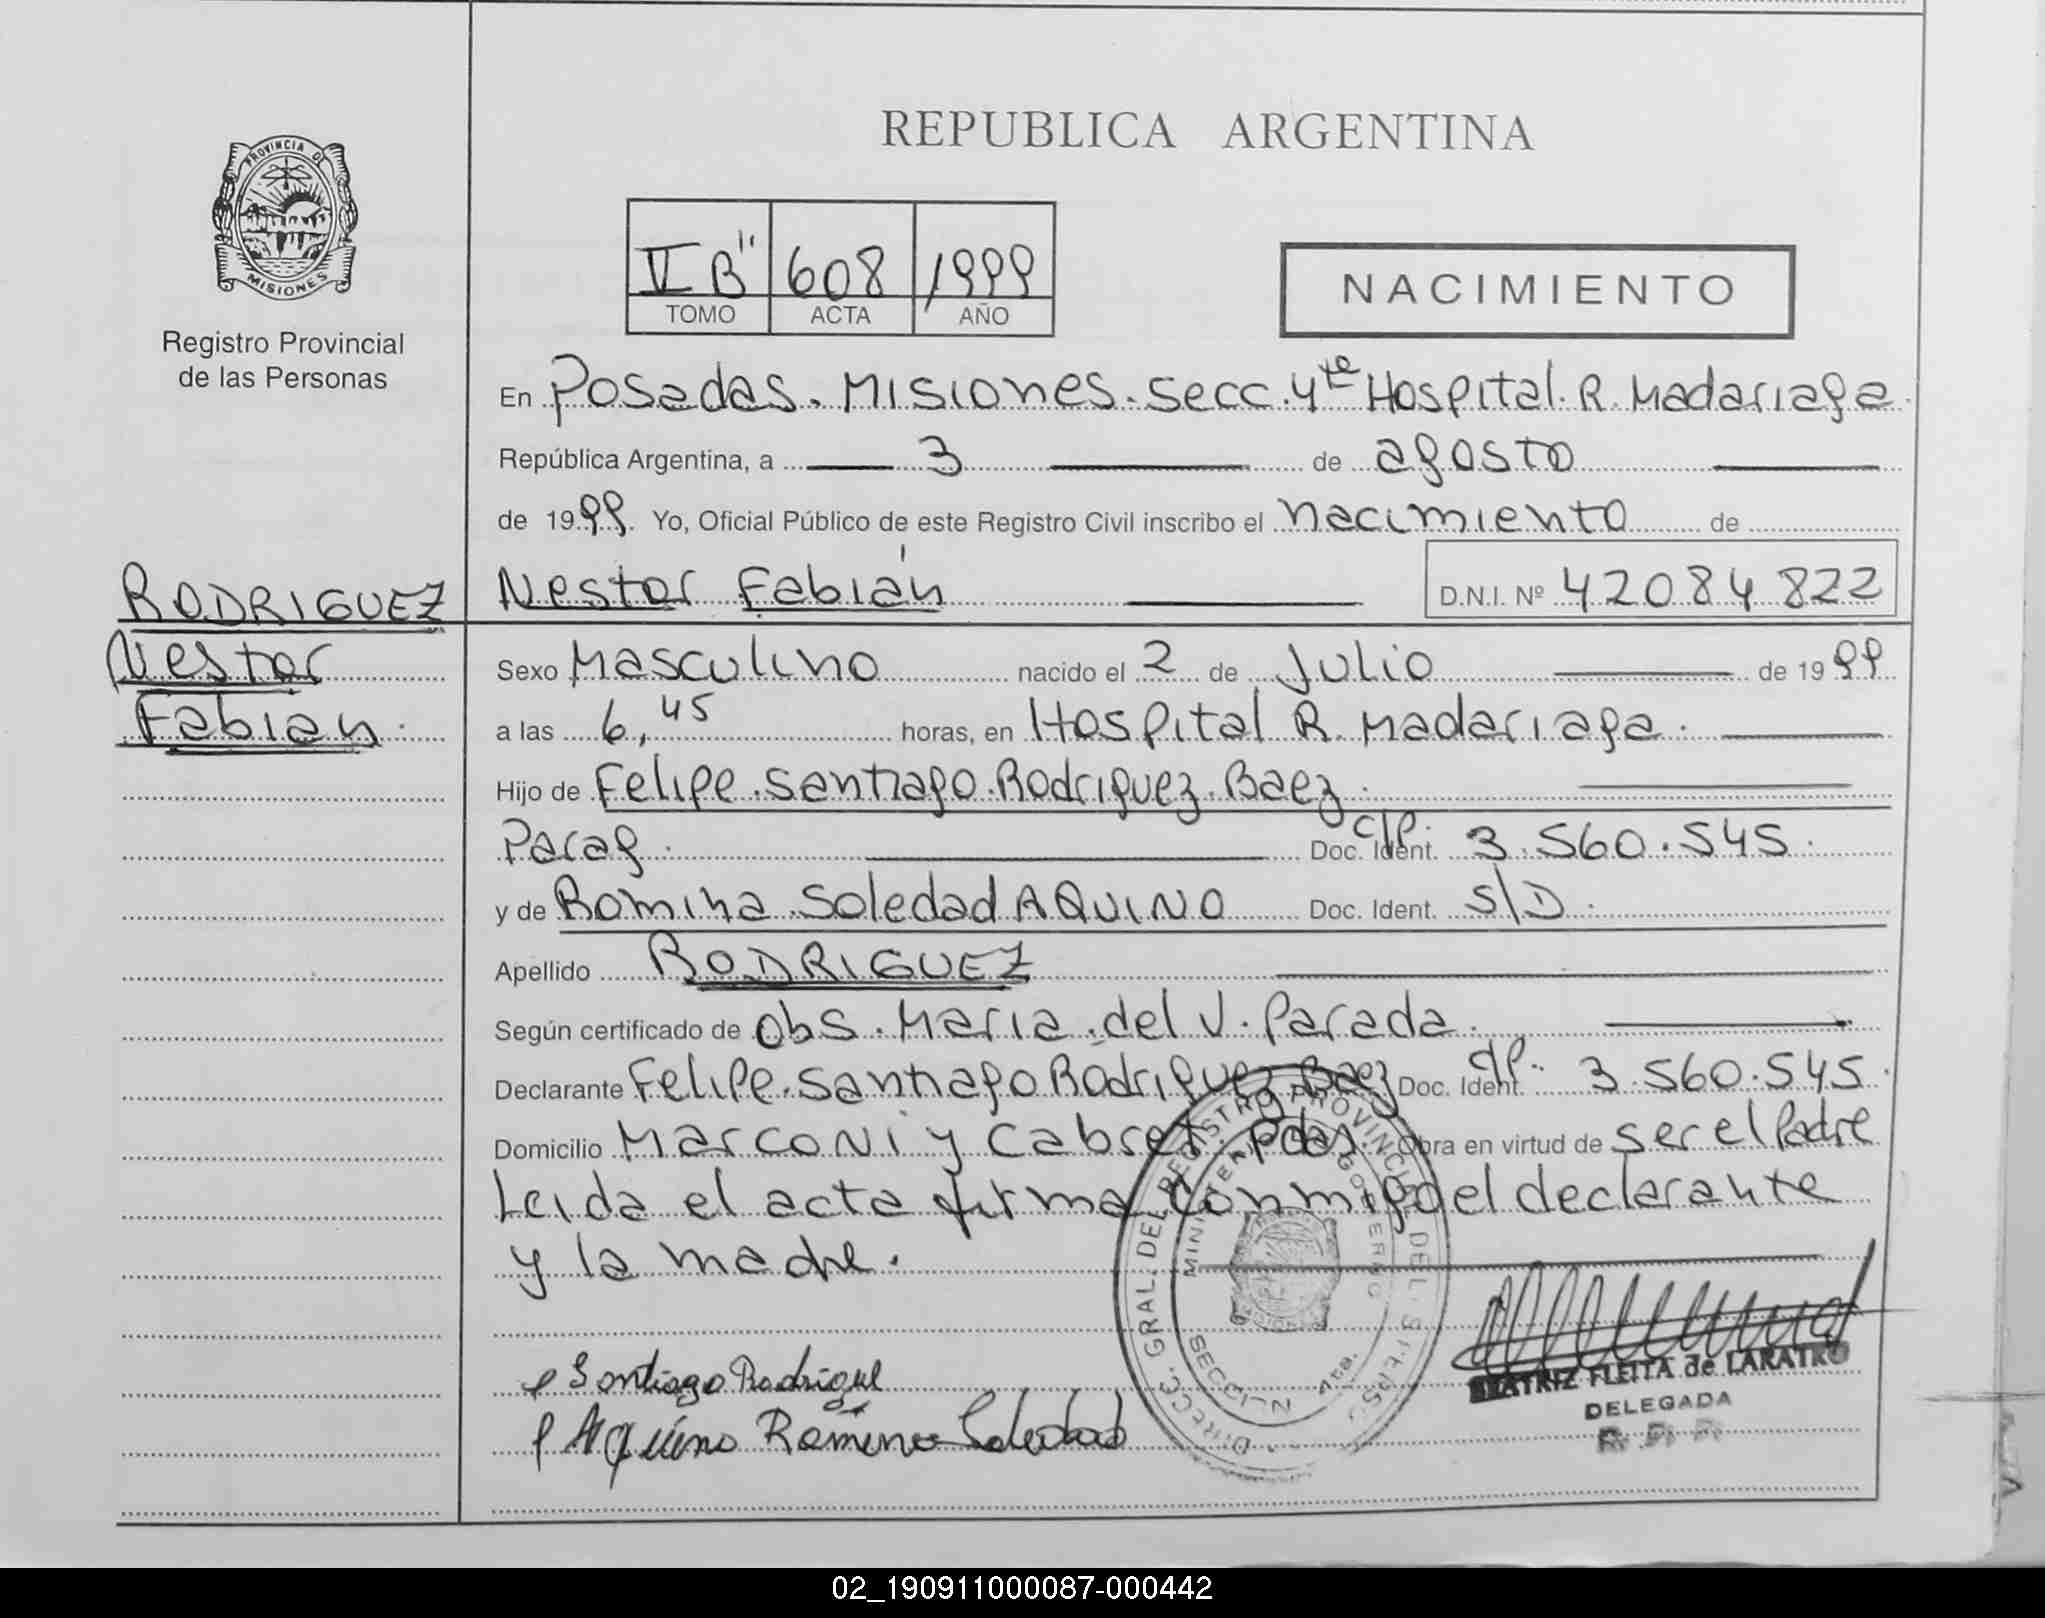 REPUBLICA ARGENTINA
PROVINCIA DE
MISIONES
Registro Provincial
de las Personas
V B" 608 1999
TOMO ACTA AÑO
NACIMIENTO
En Posadas. Misiones. Secc. 4te Hospital. R. Madariaga.
República Argentina, a 3 de agosto
de 1999. Yo, Oficial Público de este Registro Civil inscribo el nacimiento de
RODRIGUEZ
Nestor
Fabian.
Nestor Fabián D.N.I. Nº 42084822
Sexo Masculino nacido el 2 de Julio de 1999
a las 6,45 horas, en Hospital R. Madariaga.
Hijo de Felipe Santiago Rodriguez Baez.
Parag. Doc. Ident. C/P: 3.560.545.
y de Romina Soledad AQUINO Doc. Ident. S/D.
Apellido RODRIGUEZ
Según certificado de Obs. Maria del V. Parada.
Declarante Felipe Santiago Rodriguez Baez Doc. Ident. C/P: 3.560.545.
Domicilio Marconi y Cabred. Pdas. Obra en virtud de ser el Padre
Leida el acta firma conmigo el declarante
y la madre.
DIRECC. GRAL. DEL REGISTRO PROVINCIAL DE
MINISTERIO GOBIERNO
SECCION 4ta.
Santiago Rodriguez
Aquino Romina Soledad
BEATRIZ FLEITA de LARATRO
DELEGADA
R. P. P.
02_190911000087-000442